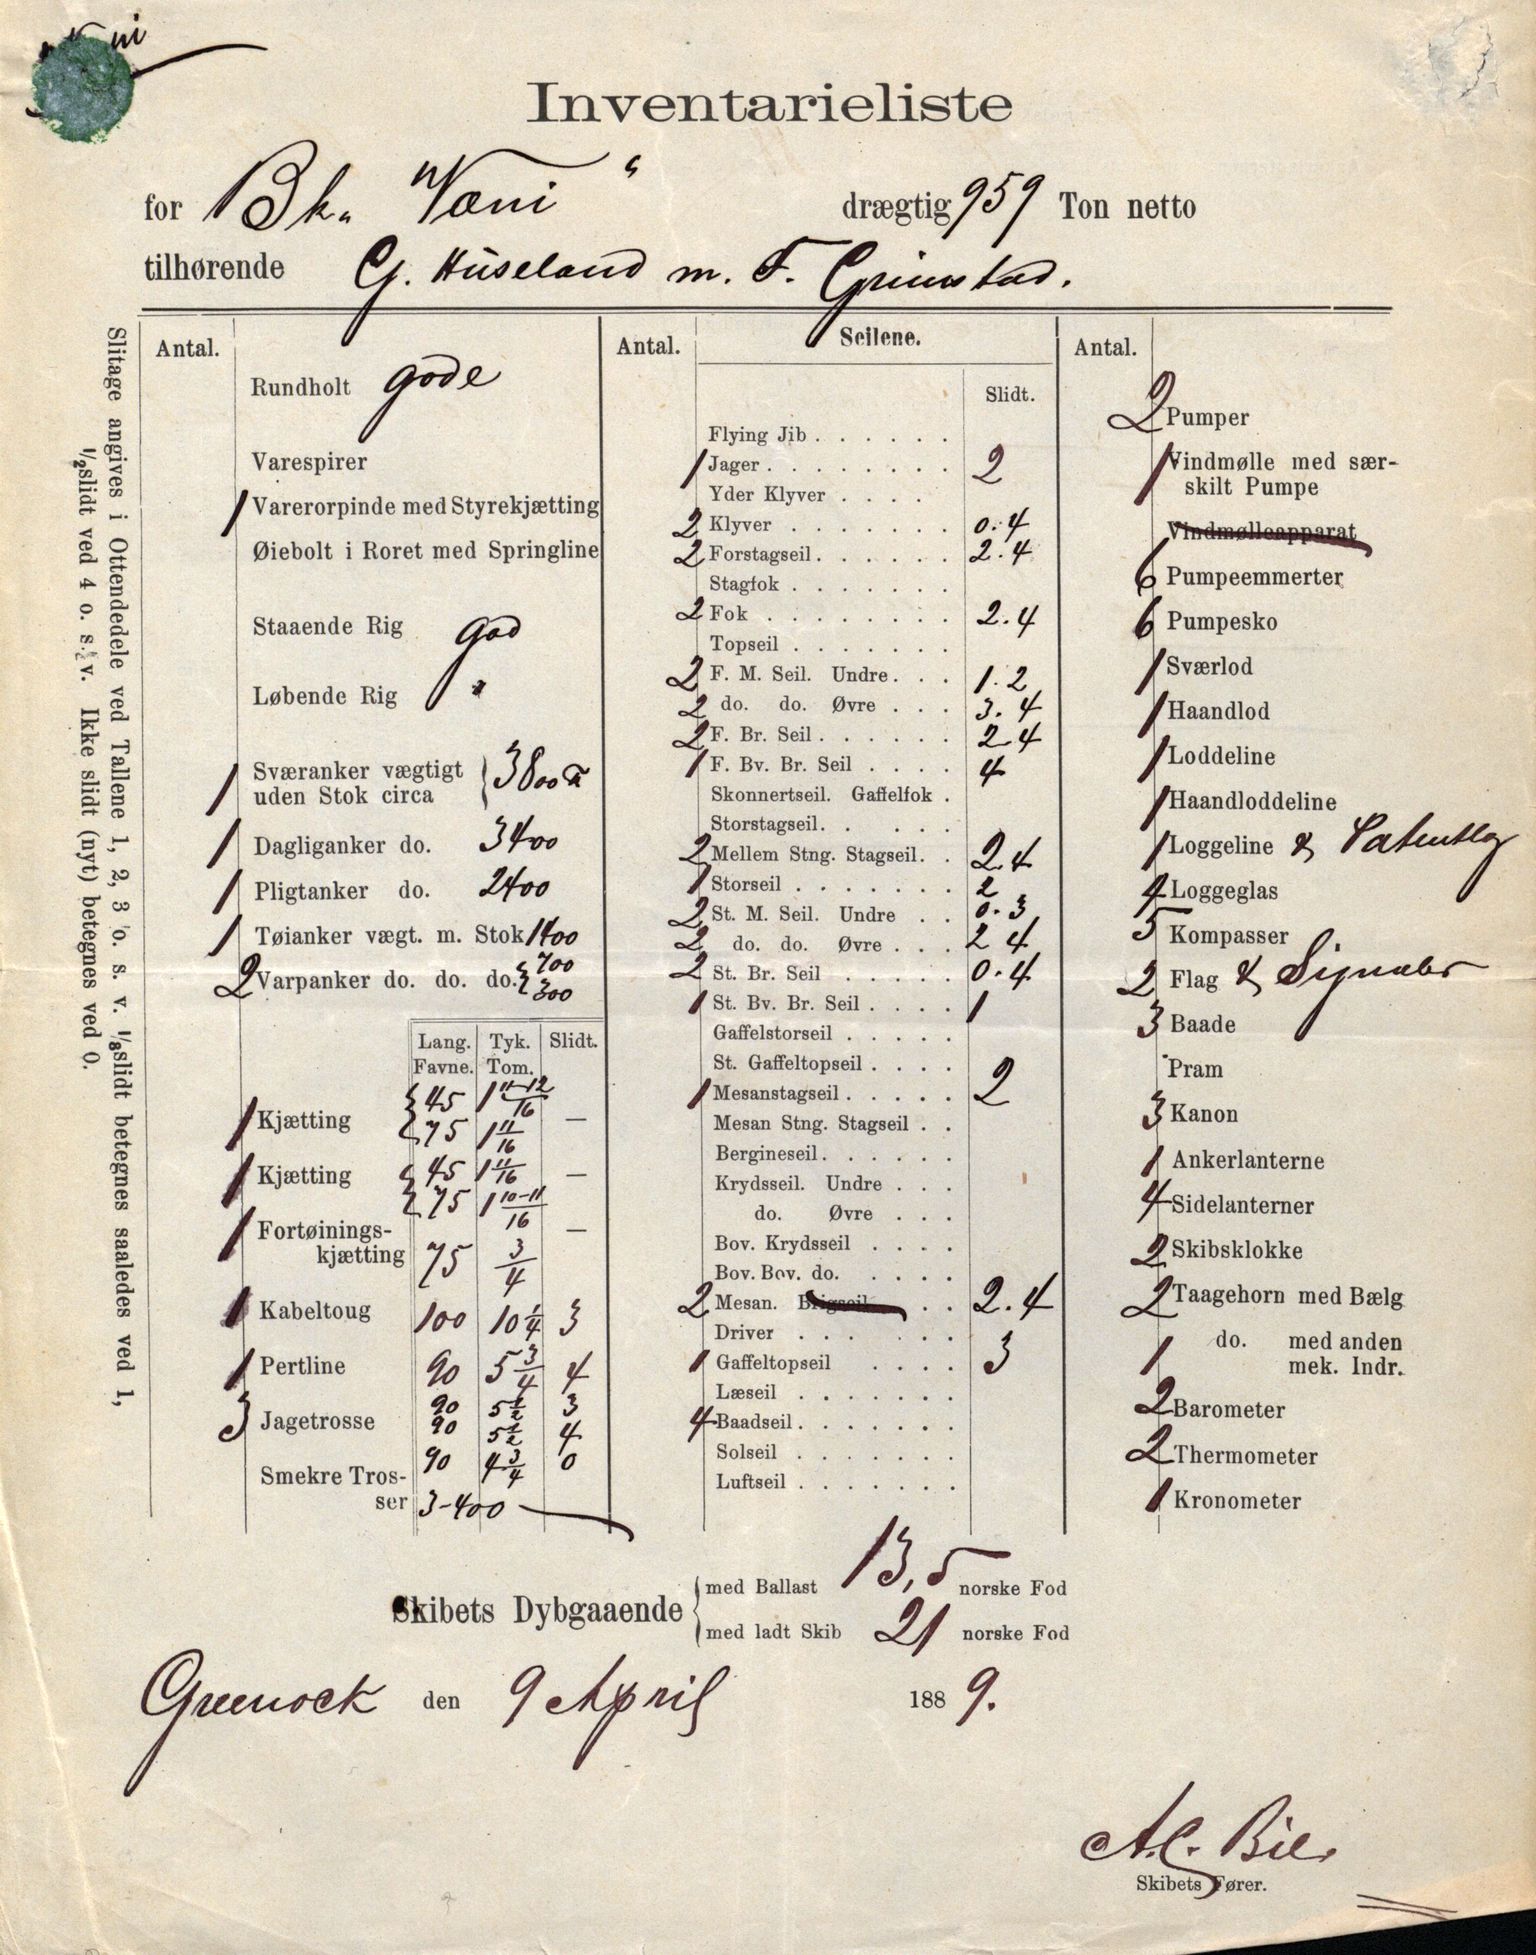 Inventarieliste
for Bk. "Væni" drægtig 959 Ton netto
tilhørende G. Huseland m. F. Grimstad.
Slitage angives i Ottendedele ved Tallene 1, 2, 3 o. s. v. 1/8 slidt betegnes saaledes ved 1,
1/2 slidt ved 4 o. s. v. Ikke slidt (nyt) betegnes ved 0.
Antal.
Rundholt gode
Varespirer
1 Varerorpinde med Styrekjætting
Øiebolt i Roret med Springline
Staaende Rig god
Løbende Rig "
1 Sværanker vægtigt
uden Stok circa 3800 ℔
1 Dagliganker do. 3400
1 Pligtanker do. 2400
1 Tøianker vægt. m. Stok 1400
2 Varpanker do. do. do. { 700
300
Lang. Tyk. Slidt.
Favne. Tom.
1 Kjætting { 45 1 11-12/16 —
75 1 11/16
1 Kjætting { 45 1 11/16 —
75 1 10-11/16
1 Fortøinings-
kjætting 75 3/4 —
1 Kabeltoug 100 10 1/4 3
1 Pertline 90 5 3/4 4
3 Jagetrosse 90 5 1/2 3
90 5 1/2 4
90 4 3/4 0
Smekre Tros-
ser 3-400
Antal. Seilene.
Slidt.
Flying Jib
1 Jager 2
Yder Klyver
2 Klyver 0.4
2 Forstagseil 2.4
Stagfok
2 Fok 2.4
Topseil
2 F. M. Seil. Undre 1.2
2 do. do. Øvre 3.4
2 F. Br. Seil 2 4
1 F. Bv. Br. Seil 4
Skonnertseil. Gaffelfok
Storstagseil
2 Mellem Stng. Stagseil 2.4
1 Storseil 2
2 St. M. Seil. Undre 0.3
2 do. do. Øvre 2 4
2 St. Br. Seil 0.4
1 St. Bv. Br. Seil 1
Gaffelstorseil
St. Gaffeltopseil
1 Mesanstagseil 2
Mesan Stng. Stagseil
Bergineseil
Krydsseil. Undre
do. Øvre
Bov. Krydsseil
Bov. Bov. do.
2 Mesan. Brigseil 2.4
Driver
1 Gaffeltopseil 3
Læseil
4 Baadseil
Solseil
Luftseil
Antal.
2 Pumper
1 Vindmølle med sær-
skilt Pumpe
Vindmølleapparat
6 Pumpeemmerter
6 Pumpesko
1 Sværlod
1 Haandlod
1 Loddeline
1 Haandloddeline
1 Loggeline & Patentlog
4 Loggeglas
5 Kompasser
2 Flag & Signaler
3 Baade
Pram
3 Kanon
1 Ankerlanterne
4 Sidelanterner
2 Skibsklokke
2 Taagehorn med Bælg
1 do. med anden
mek. Indr.
2 Barometer
2 Thermometer
1 Kronometer
Skibets Dybgaaende { med Ballast 13,5 norske Fod
med ladt Skib 21 norske Fod
Greenock den 9 April 1889.
A.C. Bie
Skibets Fører.